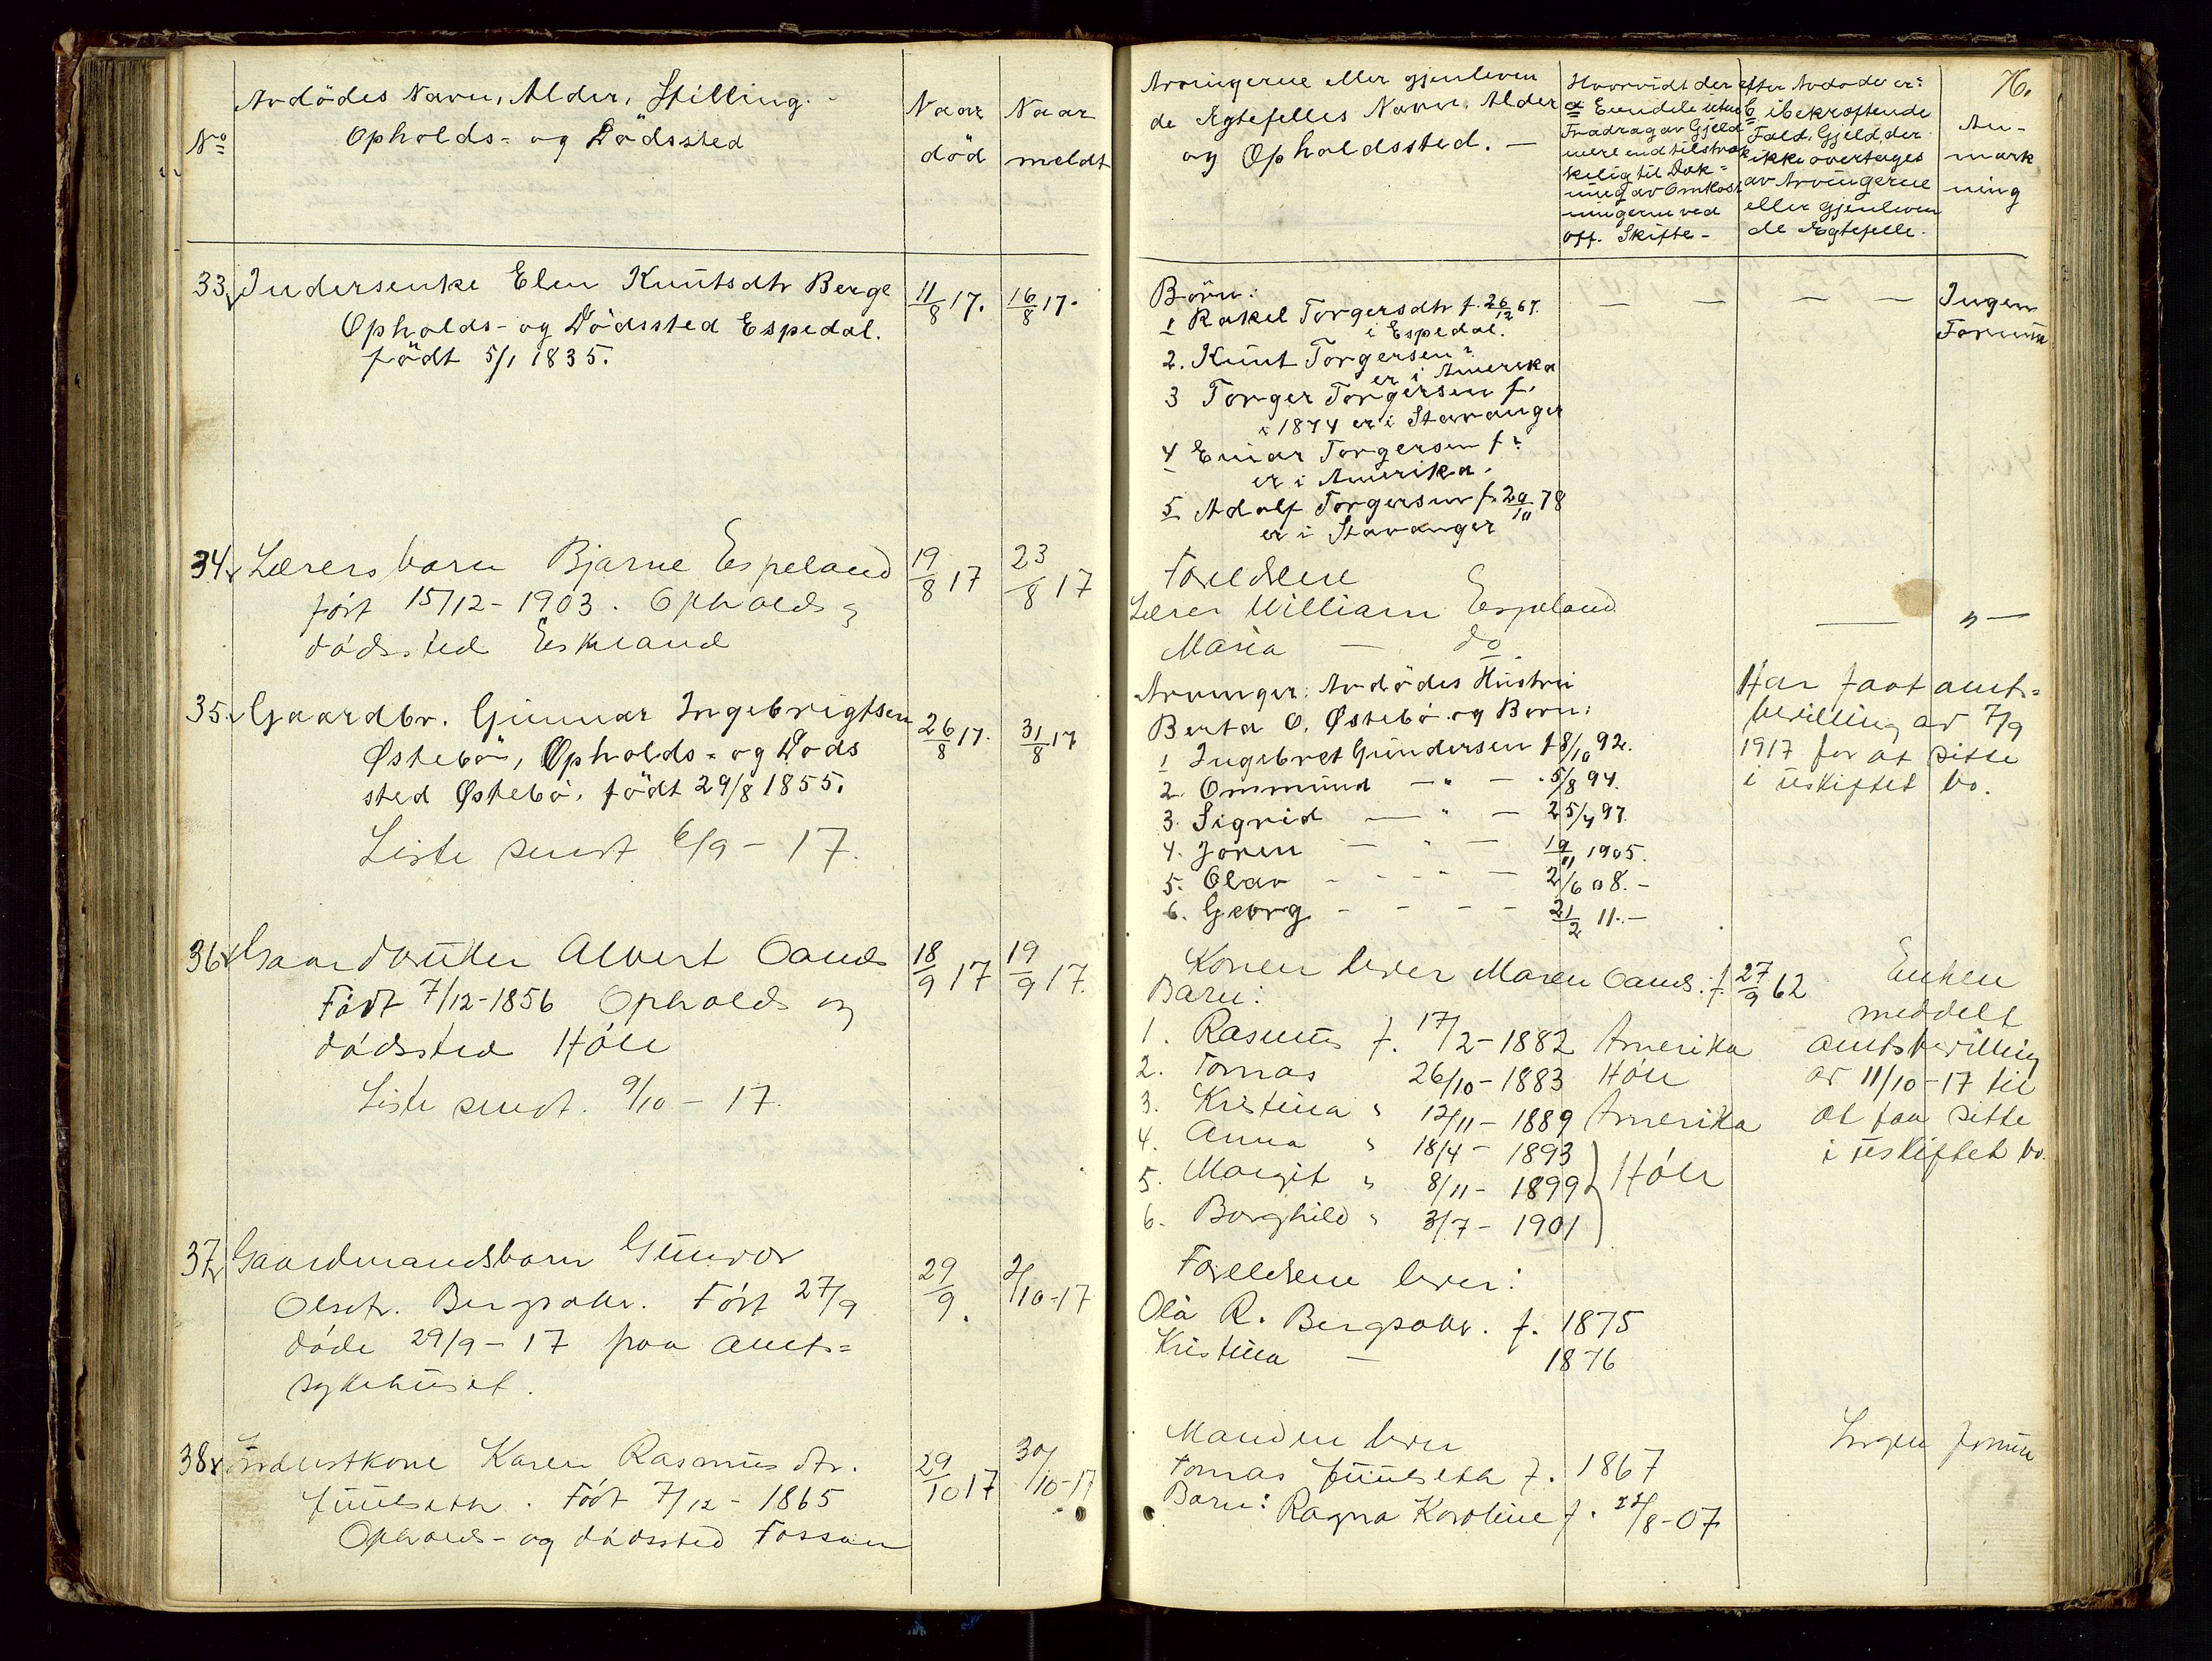 No
Avdödes Navn, Alder, Stilling.
Opholds- og Dødssted
Naar
död
Naar
meldt
33. Indersenke Elen Knutsdtr Berge
Opholds- og Dödssted Espedal.
født 5/1 1835.
11/8 17.
16/8 17.
34. Lærers barn Bjarne Espeland
født 15/12-1903. Opholds og
dødssted Eskeland
19/8 17
23/8 17
35. Gaardbr. Gunnar Ingebrigtsen
Østebö, Opholds- og Döds
sted Østebö, født 29/8 1855.
Liste sendt 6/9 - 17.
26/8 17.
31/8 17
36. Gaardbruker Albert Oands
Født 7/12-1856 Opholds og
dødssted Høle
Liste sendt. 9/10 - 17.
18/9 17
19/9 17.
37. Gaardmandsbarn Gunvor
Olsdtr. Bergsaker. Født 27/9
døde 29/9 - 17 paa Amts-
sykehuset.
29/9.
2/10-17
38. Karen Rasmusdtr.
Født 7/12 - 1865
Opholds- og dødssted Fossan
29/10 17
30/10-17
76.
Arvingerne eller gjenleven
de Ægtefelles Navn, Alder
og Opholdssted. —
Hvorvidt der efter Avdøde er:
a Eiendele uten
Fradrag av Gjeld
mere end tilstræk
kelig til Dæk-
ning av Omkost
ningerne ved
off. Skifte -
b, i bekræftende
Fald, Gjeld, der
ikke overtages
av Arvingerne
eller gjenleven
de Ægtefelle.
An-
mærk
ning
Børn:
1 Rakel Torgersdtr f. 26/12 67.
i Espedal.
2. Knut Torgersen?
er i Amerika
3 Torger Torgersen f.
i 1874 er i Stavanger
4 Einar Torgersen f?
er i Amerika.
5 Adolf Torgersen f. 29/10 78
er i Stavanger
— — — —
Ingen
Formue
Foreldrene
Lærer William Espeland
Maria — do
— " —
Arvinger: Avdödes Hustru
Berta O. Østebö og Børn:
1 Ingebret Gundersen f 8/10 92.
2. Ommund — " — . 5/8 94.
3. Sigrid — " — 25/4 97.
4. Joren — " — 19/11 1905.
5. Olav - - - " — 2/6 08. -
6. Georg - - - - 21/2 11. -
Har faat amts-
bevilling av 7/9
1917 for at sitte
i uskiftet bo.
Konen lever Maren Oands. f. 27/9 62
Barn:
1. Rasmus f. 17/2 - 1882 Amerika
2. Tomas 26/10 - 1883 Høle
3. Kristina " 12/11 - 1889 Amerika
4. Anna " 18/4 - 1893
5. Margit " 8/11 - 1899 } Høle
6. Borghild " 3/7 - 1901
Enken
meddelt
amtsbevilling
av 11/10-17 til
at faa sitte
i uskiftet bo.
Foreldrene lever:
Ola R. Bergsaker. f. 1875
Kristina — 1876
Manden lever
Tomas f. 1867
Barn: Ragna Karoline f. 22/8-07
Ingen formue